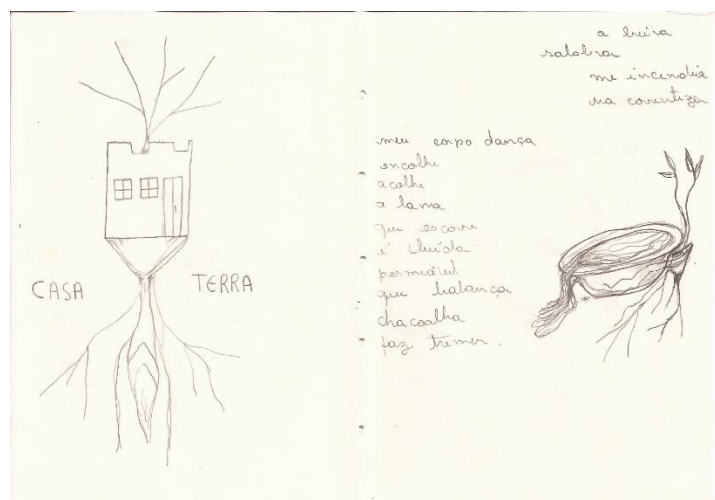 CASA TERRA
a beira
salobra
me incendeia
na correnteza
meu corpo dança
encolhe
acolhe
a lama
que escorre
é fluída
permeável
que balança
chacoalha
faz tremer.